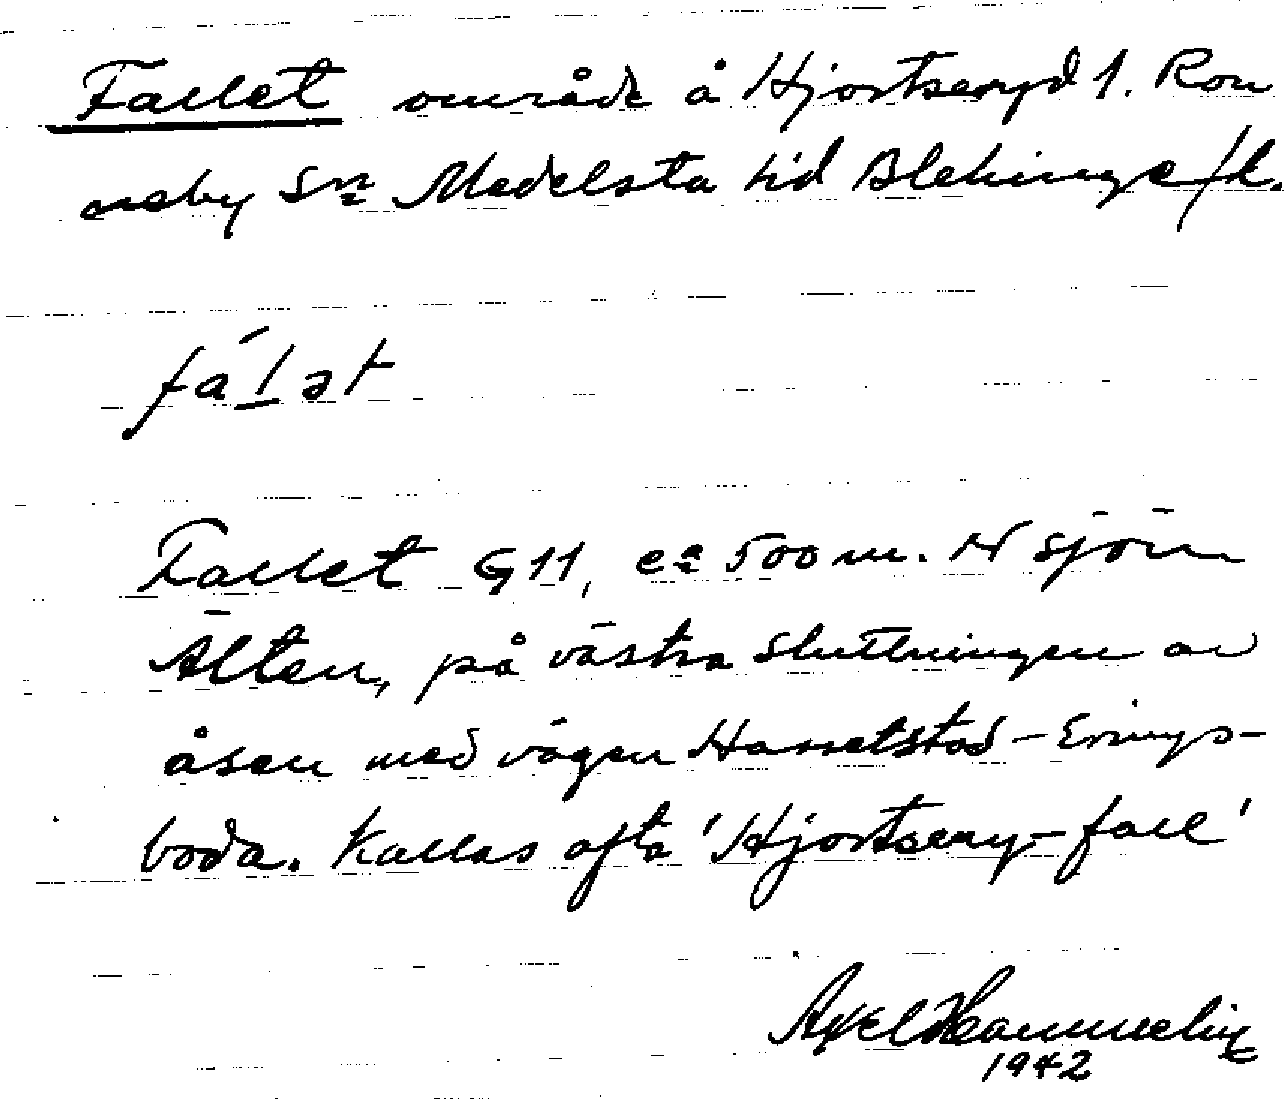 Fallet område å Hjortseryd 1. Ron
neby Sn Medelsta hd Blekinge l.
fálət
Fallet G11, ca 500 m. N sjön
Älten, på västra sluttningen av
åsen med vägen Hasselstad - Erings-
boda. Kallas ofta 'Hjortsery-fall'
Axel
1942